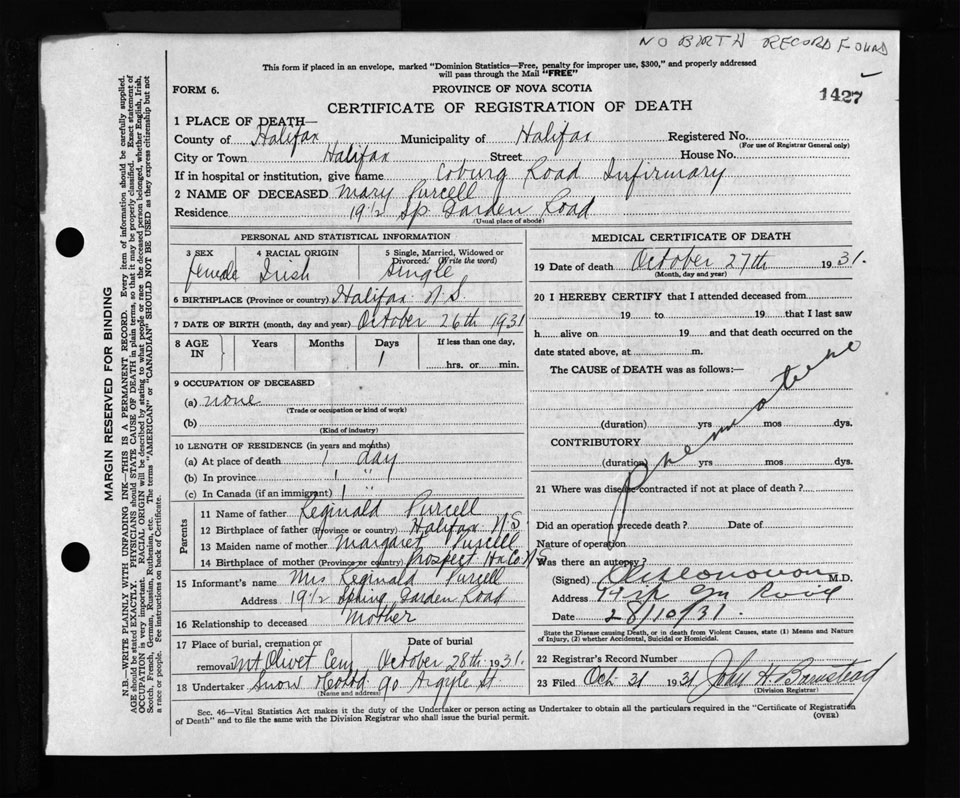 NO BIRTH RECORD FOUND
This form if placed in an envelope, marked "Dominion Statistics—Free, penalty for improper use, $300," and properly addressed
will pass through the Mail "FREE"
FORM 6.
PROVINCE OF NOVA SCOTIA
1427
CERTIFICATE OF REGISTRATION OF DEATH
1 PLACE OF DEATH—
County of Halifax Municipality of Halifax Registered No.
(For use of Registrar General only)
City or Town Halifax Street House No.
If in hospital or institution, give name Coburg Road Infirmary
2 NAME OF DECEASED Mary Purcell
Residence 19½ Sp Garden Road
(Usual place of abode)
PERSONAL AND STATISTICAL INFORMATION
3 SEX female 4 RACIAL ORIGIN Irish 5 Single, Married, Widowed or Divorced: (Write the word) Single
6 BIRTHPLACE (Province or country) Halifax N.S.
7 DATE OF BIRTH (month, day and year) October 26th 1931
8 AGE IN Years Months Days 1 If less than one day, hrs. or min.
9 OCCUPATION OF DECEASED
(a) none
(Trade or occupation or kind of work)
(b)
(Kind of industry)
10 LENGTH OF RESIDENCE (in years and months)
(a) At place of death 1 day
(b) In province 1 "
(c) In Canada (if an immigrant) 1 "
Parents
11 Name of father Reginald Purcell
12 Birthplace of father (Province or country) Halifax N.S
13 Maiden name of mother Margaret Purcell
14 Birthplace of mother (Province or country) Prospect Hx Co. N S
15 Informant's name Mrs Reginald Purcell
Address 19½ Spring Garden Road
16 Relationship to deceased Mother
17 Place of burial, cremation or Date of burial
removal Mt Olivet Cem October 28th 1931.
18 Undertaker Snow & Co Ltd 90 Argyle St
(Name and address)
MEDICAL CERTIFICATE OF DEATH
19 Date of death October 27th 1931.
(Month, day and year)
20 I HEREBY CERTIFY that I attended deceased from
19 to 19 that I last saw
h alive on 19 and that death occurred on
date stated above, at m.
The CAUSE of DEATH was as follows:—
Premature
(duration) yrs mos dys.
CONTRIBUTORY
(duration) yrs mos dys.
21 Where was disease contracted if not at place of death?
Did an operation precede death? Date of
Nature of operation
Was there an autopsy?
(Signed) M.D.
Address
Date 28/10/31.
State the Disease causing Death, or in death from Violent Causes, state (1) Means and Nature
of Injury, (2) whether Accidental, Suicidal or Homicidal.
22 Registrar's Record Number
23 Filed Oct 31 1931 John H. Barnstead
(Division Registrar)
Sec. 46—Vital Statistics Act makes it the duty of the Undertaker or person acting as Undertaker to obtain all the particulars required in the "Certificate of Registration
of Death" and to file the same with the Division Registrar who shall issue the burial permit.
(OVER)
MARGIN RESERVED FOR BINDING
N.B.—WRITE PLAINLY WITH UNFADING INK—THIS IS A PERMANENT RECORD. Every item of information should be carefully supplied.
AGE should be stated EXACTLY. PHYSICIANS should STATE CAUSE OF DEATH in plain terms, so that it may be properly classified. Exact statement of
OCCUPATION is very important. RACIAL ORIGIN will be described by stating to what people or race the deceased person belonged, whether English, Irish,
Scotch, French, German, Russian, Ruthenian, etc. The terms "AMERICAN" or "CANADIAN" SHOULD NOT BE USED as they express citizenship but not
a race or people. See instructions on back of Certificate.